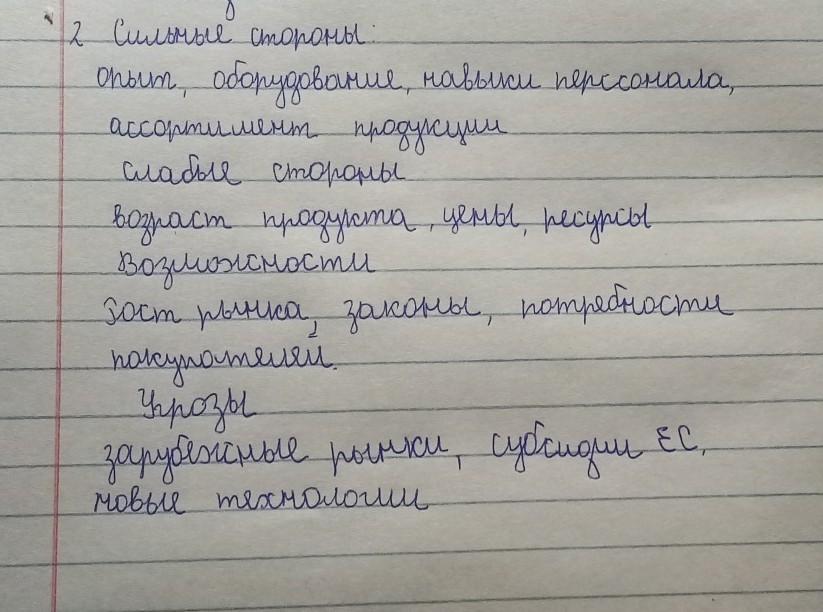 2 Сильные стороны:
опыт, оборудование, навыки перссонала,
ассортимент продукции
слабые стороны
возраст продукта, цены, ресурсы
Возможности
рынка, законы, потребности
покупателей.
Угрозы
зарубежные рынки, субсидии ЕС,
новые технологии